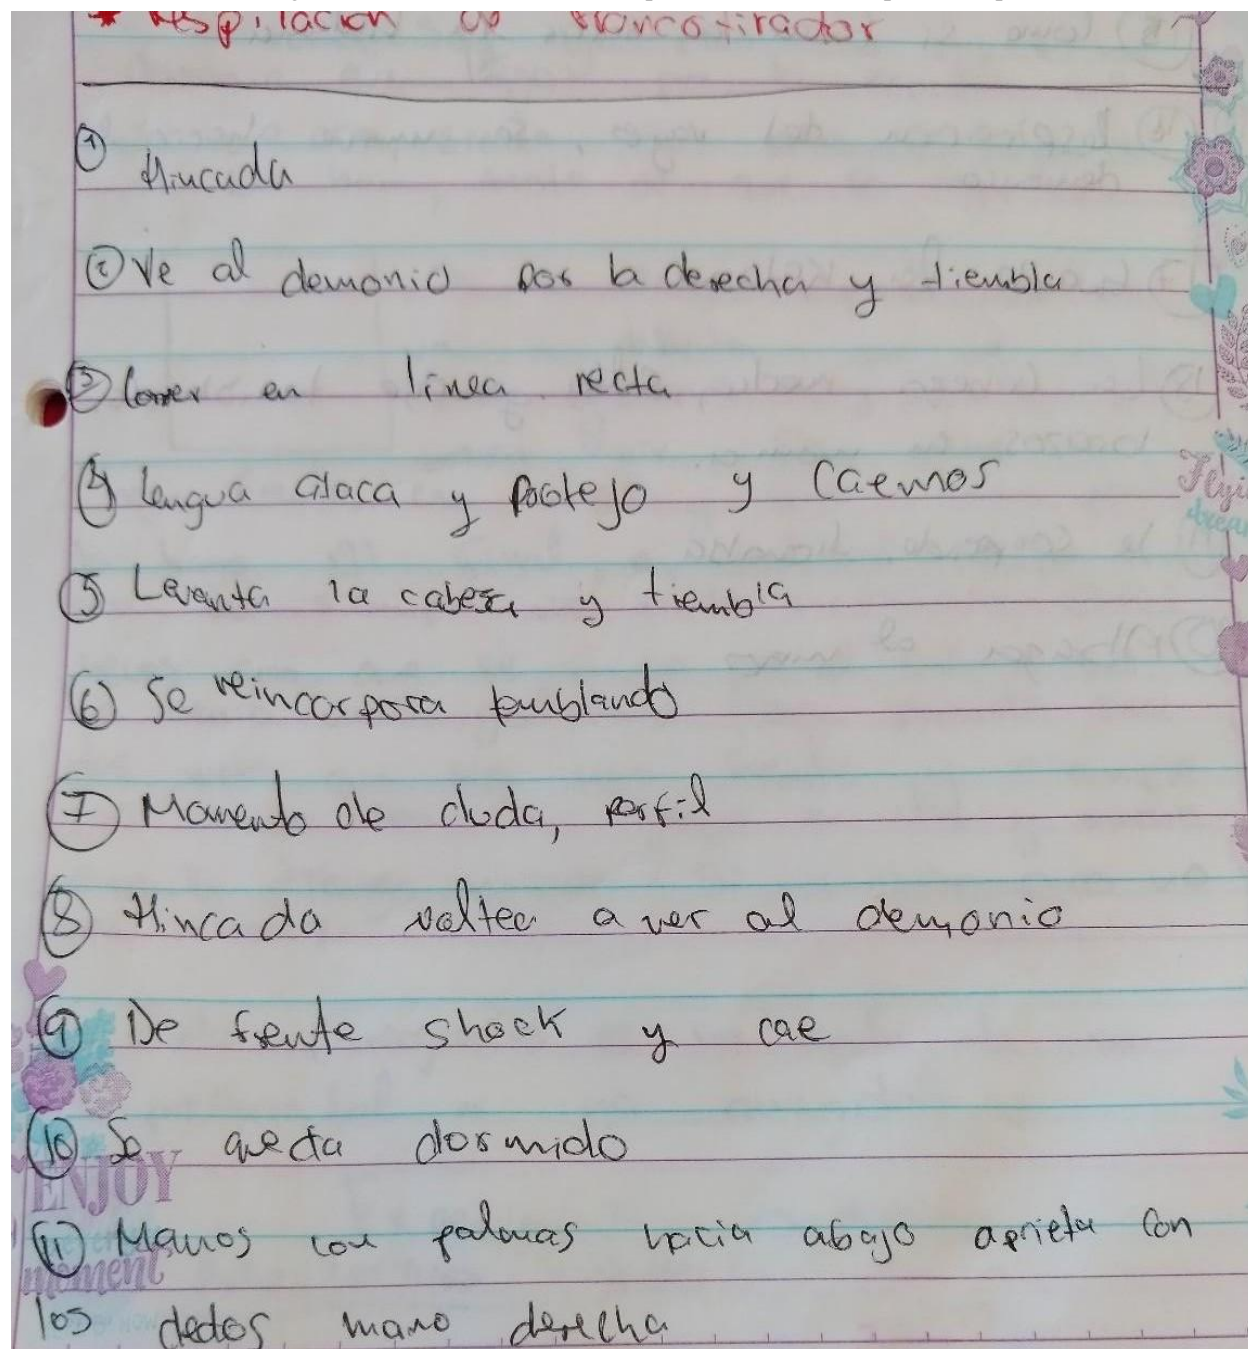 * Respiración de francotirador
① Hincada
② Ve al demonio por la derecha y tiembla
③ Correr en línea recta
④ Lengua ataca y protejo y caemos
⑤ Levanta la cabeza y tiembla
⑥ Se reincorpora temblando
⑦ Momento de duda, perfil
⑧ Hincada voltea a ver al demonio
⑨ De frente shock y cae
⑩ Se queda dormido
⑪ Manos con palmas hacia abajo aprieta con
los dedos mano derecha
ENJOY
moment